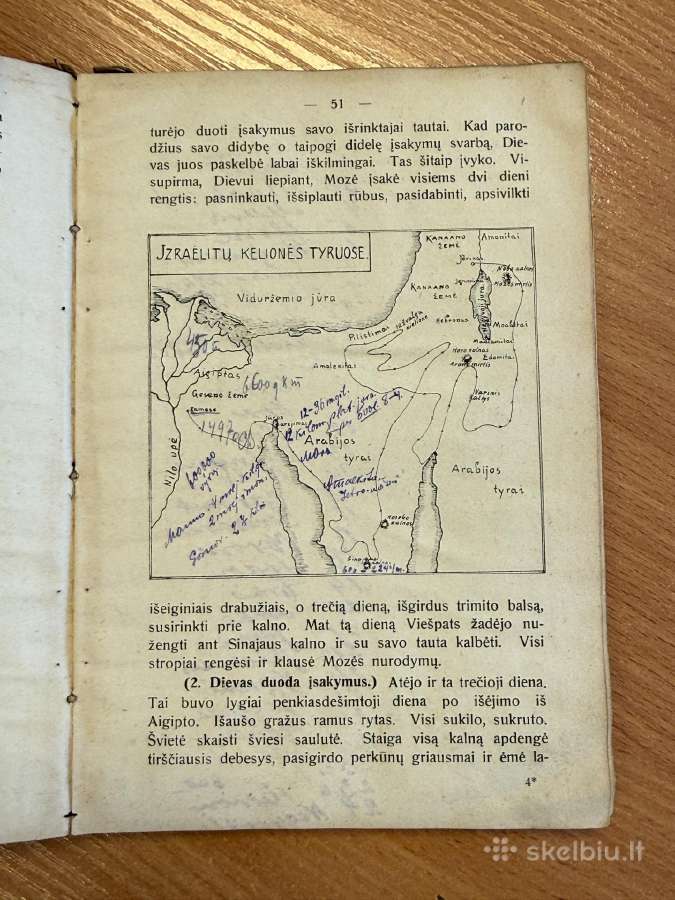 — 51 —
turėjo duoti įsakymus savo išrinktajai tautai. Kad paro-
džius savo didybę o taipogi didelę įsakymų svarbą, Die-
vas juos paskelbė labai iškilmingai. Tas šitaip įvyko. Vi-
supirma, Dievui liepiant, Mozė įsakė visiems dvi dieni
rengtis: pasninkauti, išsiplauti rūbus, pasidabinti, apsivilkti
JZRAĖLITŲ KELIONĖS TYRUOSE.
KANAANO
ŽEMĖ
Amonitai
Viduržemio jūra
KANAANO
ŽEMĖ
Nebo kalnas
Mozės mirtis
Negyvoji jūra
Hebronas
Moabitai
Pilistimai
Amalekitai
Horo kalnas
Arono mirtis
Edomitai
Aigiptas
Geseno žemė
Ramesė
6600 gkm
12-36 mgil.
Arabijos
tyrai
1497
Mara
Nilo upė
Arabijos
tyrai
Horebo
kalnas
išeiginiais drabužiais, o trečią dieną, išgirdus trimito balsą,
susirinkti prie kalno. Mat tą dieną Viešpats žadėjo nu-
žengti ant Sinajaus kalno ir su savo tauta kalbėti. Visi
stropiai rengėsi ir klausė Mozės nurodymų.
(2. Dievas duoda įsakymus.) Atėjo ir ta trečioji diena.
Tai buvo lygiai penkiasdešimtoji diena po išėjimo iš
Aigipto. Išaušo gražus ramus rytas. Visi sukilo, sukruto.
Švietė skaisti šviesi saulutė. Staiga visą kalną apdengė
tirščiausis debesys, pasigirdo perkūnų griausmai ir ėmė la-
4*
skelbiu.lt